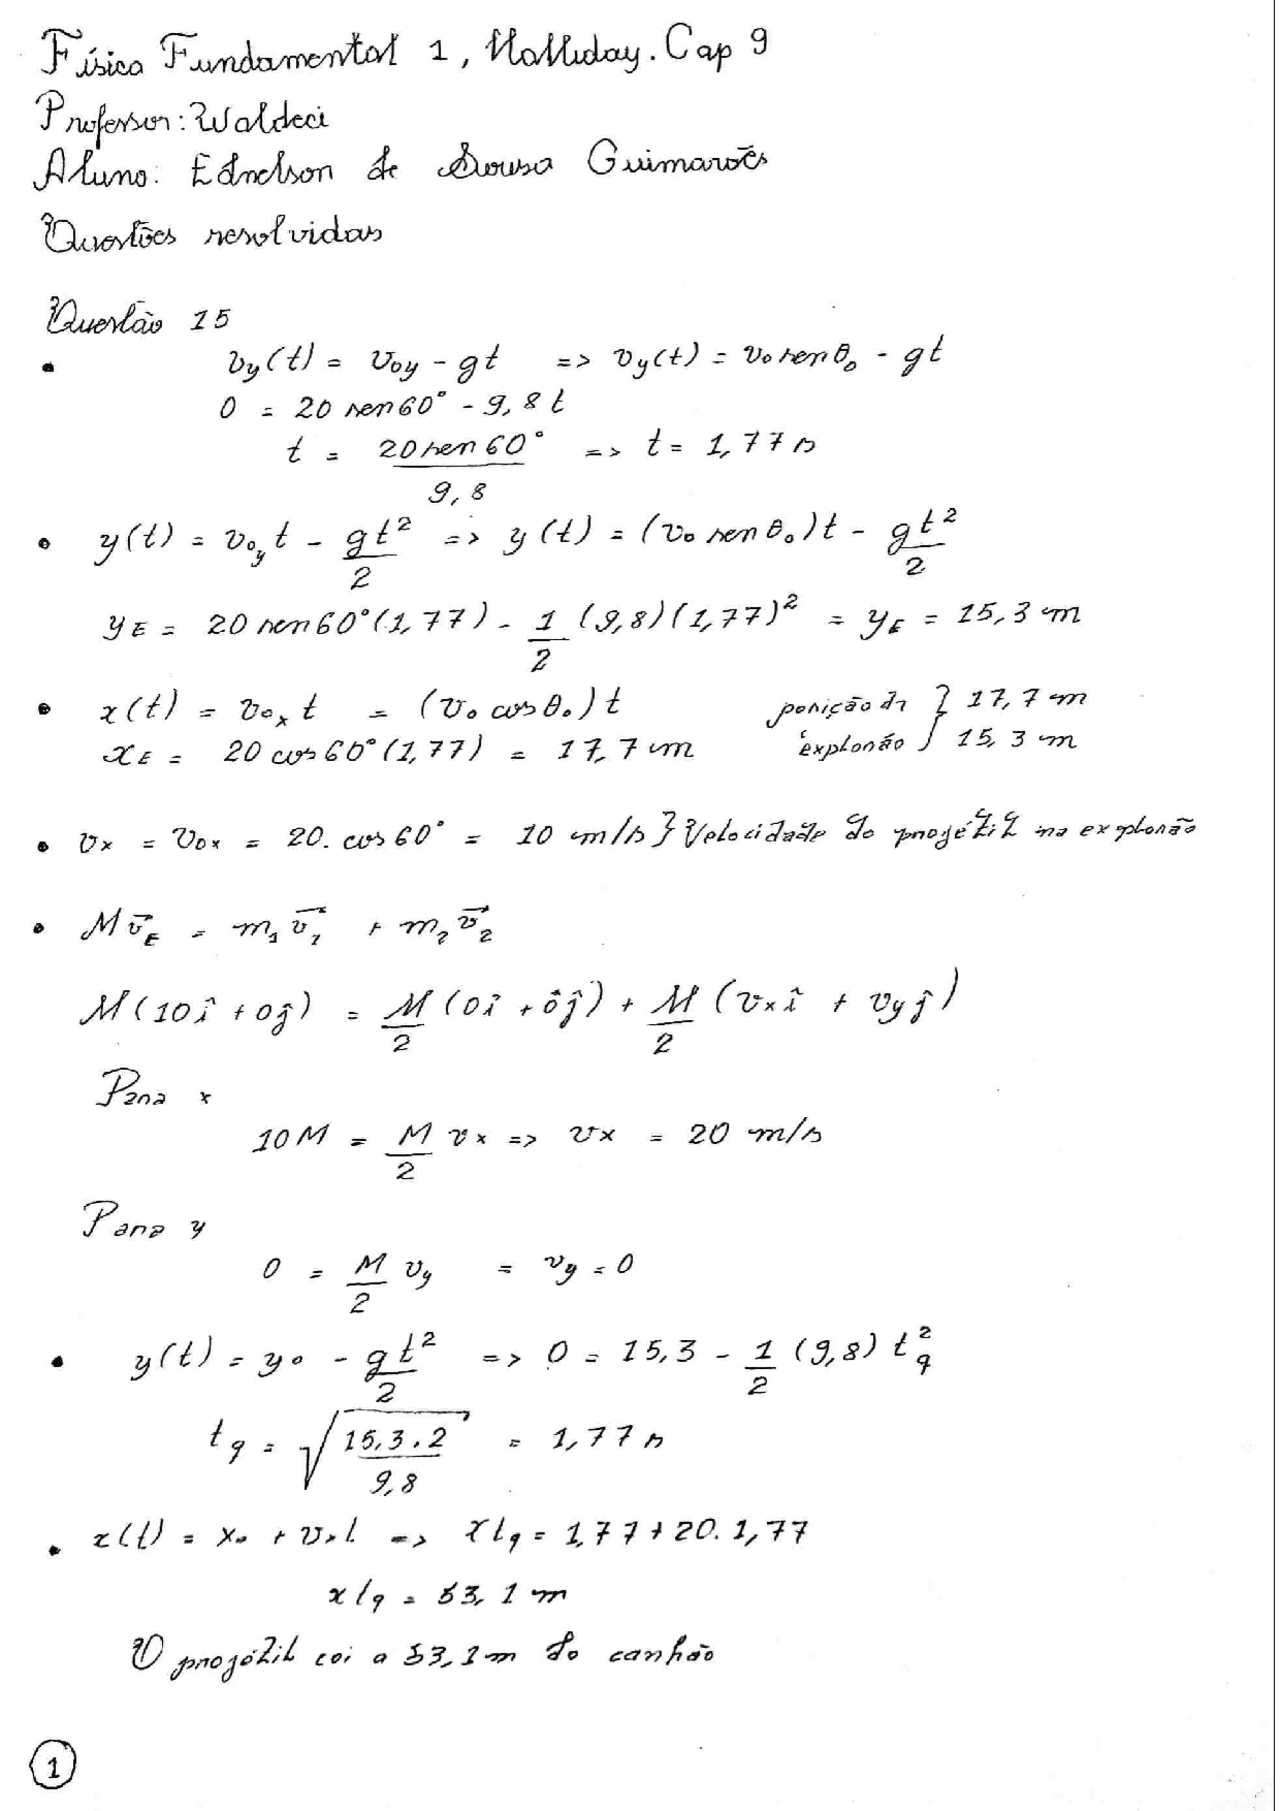 Física Fundamental 1, Halliday. Cap 9
Professor: Waldeci
Aluno: Ednelson de Sousa Guimarães
Questões resolvidas
Questão 15
• vy(t) = v0y - gt => vy(t) = v0 sen θ0 - gt
0 = 20 sen 60° - 9,8 t
t = 20 sen 60° / 9,8 => t = 1,77 s
• y(t) = v0y t - gt²/2 => y(t) = (v0 sen θ0)t - gt²/2
yE = 20 sen 60° (1,77) - 1/2 (9,8)(1,77)² = yE = 15,3 m
• x(t) = v0x t = (v0 cos θ0)t posição da } 17,7 m
xE = 20 cos 60° (1,77) = 17,7 m explosão } 15,3 m
• vx = v0x = 20. cos 60° = 10 m/s } Velocidade do projétil na explosão
• M v⃗E = m1 v⃗1 + m2 v⃗2
M(10î + 0ĵ) = M/2 (0î + 0ĵ) + M/2 (vx î + vy ĵ)
Para x
10M = M/2 vx => vx = 20 m/s
Para y
0 = M/2 vy = vy = 0
• y(t) = y0 - gt²/2 => 0 = 15,3 - 1/2 (9,8) tq²
tq = √(15,3 . 2 / 9,8) = 1,77 s
• x(t) = x0 + vx t => xtq = 1,77 + 20. 1,77
xtq = 53,1 m
O projétil cai a 53,1 m do canhão
1